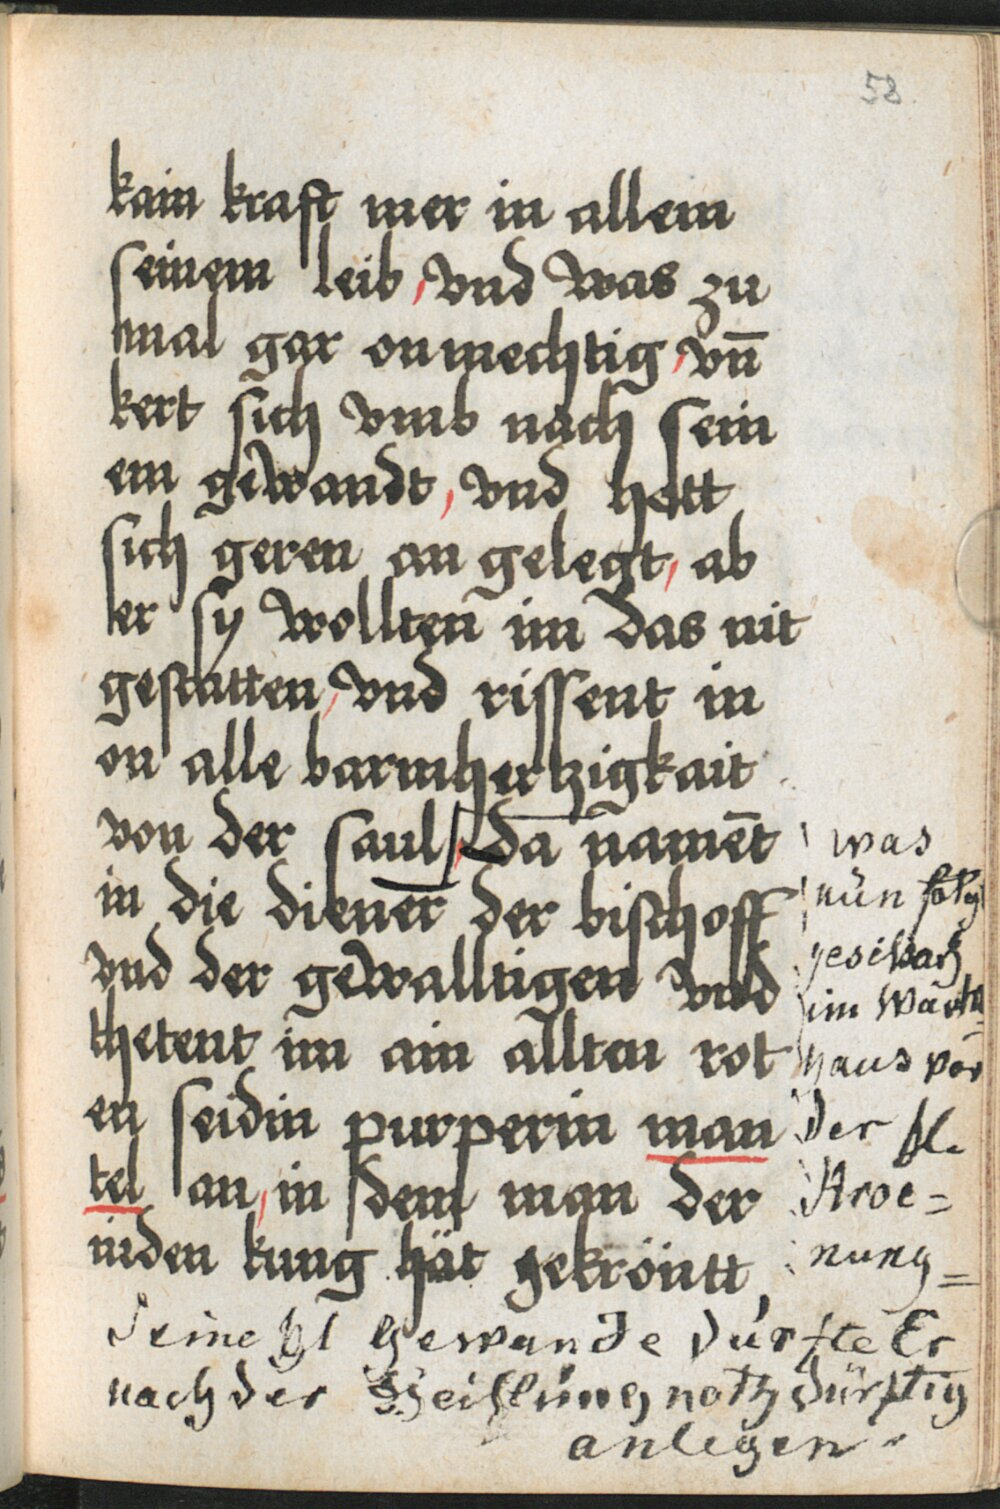 58
kain kraft mer in allem
seinem leib, vnd was zu
mal gar onmechtig, vn̄
kert sich vmb nach sein
em gewandt, vnd hett
sich geren an gelegt, ab
er sÿ wollten im das nit
gestatten, vnd rissent in
on alle barmhertzigkait
von der saul, da namēt
in die diener der bischoff
vnd der gewalltigen vnd
thetent im ain allten rot
en seidin purperin man
tel an, in dem man der
iuden kung hät gekröntt,
was
nün folgt
geschach
im
haus vor
der hl.
Kroe=
nung=
Seine hl Gewande durfte Er
nach der Geißlung nothdürftig
anlegen.